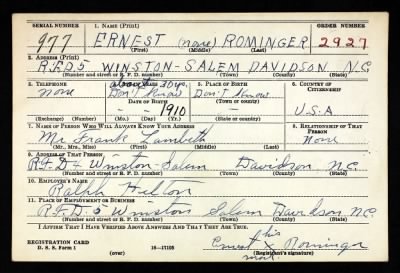 SERIAL NUMBER 1. NAME (Print) ORDER NUMBER
977 ERNEST (none) ROMINGER 2927
(First) (Middle) (Last)
2. ADDRESS (Print)
R.F.D 5 WINSTON-SALEM DAVIDSON N.C.
(Number and street or R. F. D. number) (Town) (County) (State)
3. TELEPHONE 4. AGE IN YEARS 5. PLACE OF BIRTH 6. COUNTRY OF CITIZENSHIP
about 30 yrs.
none Don't Know Don't Know
DATE OF BIRTH (Town or county)
— 1910 — U.S.A
(Exchange) (Number) (Mo.) (Day) (Yr.) (State or country)
7. NAME OF PERSON WHO WILL ALWAYS KNOW YOUR ADDRESS 8. RELATIONSHIP OF THAT PERSON
Mr Frank Lambeth None
(Mr., Mrs., Miss) (First) (Middle) (Last)
9. ADDRESS OF THAT PERSON
R.F.D 5 Winston-Salem Davidson N.C.
(Number and street or R. F. D. number) (Town) (County) (State)
10. EMPLOYER'S NAME
Ralph
11. PLACE OF EMPLOYMENT OR BUSINESS
R.F.D-5 Winston Salem Davidson N.C.
(Number and street or R. F. D. number) (Town) (County) (State)
I AFFIRM THAT I HAVE VERIFIED ABOVE ANSWERS AND THAT THEY ARE TRUE.
his
REGISTRATION CARD Ernest x Rominger
D. S. S. Form 1 (over) 16—17105 (Registrant's signature)